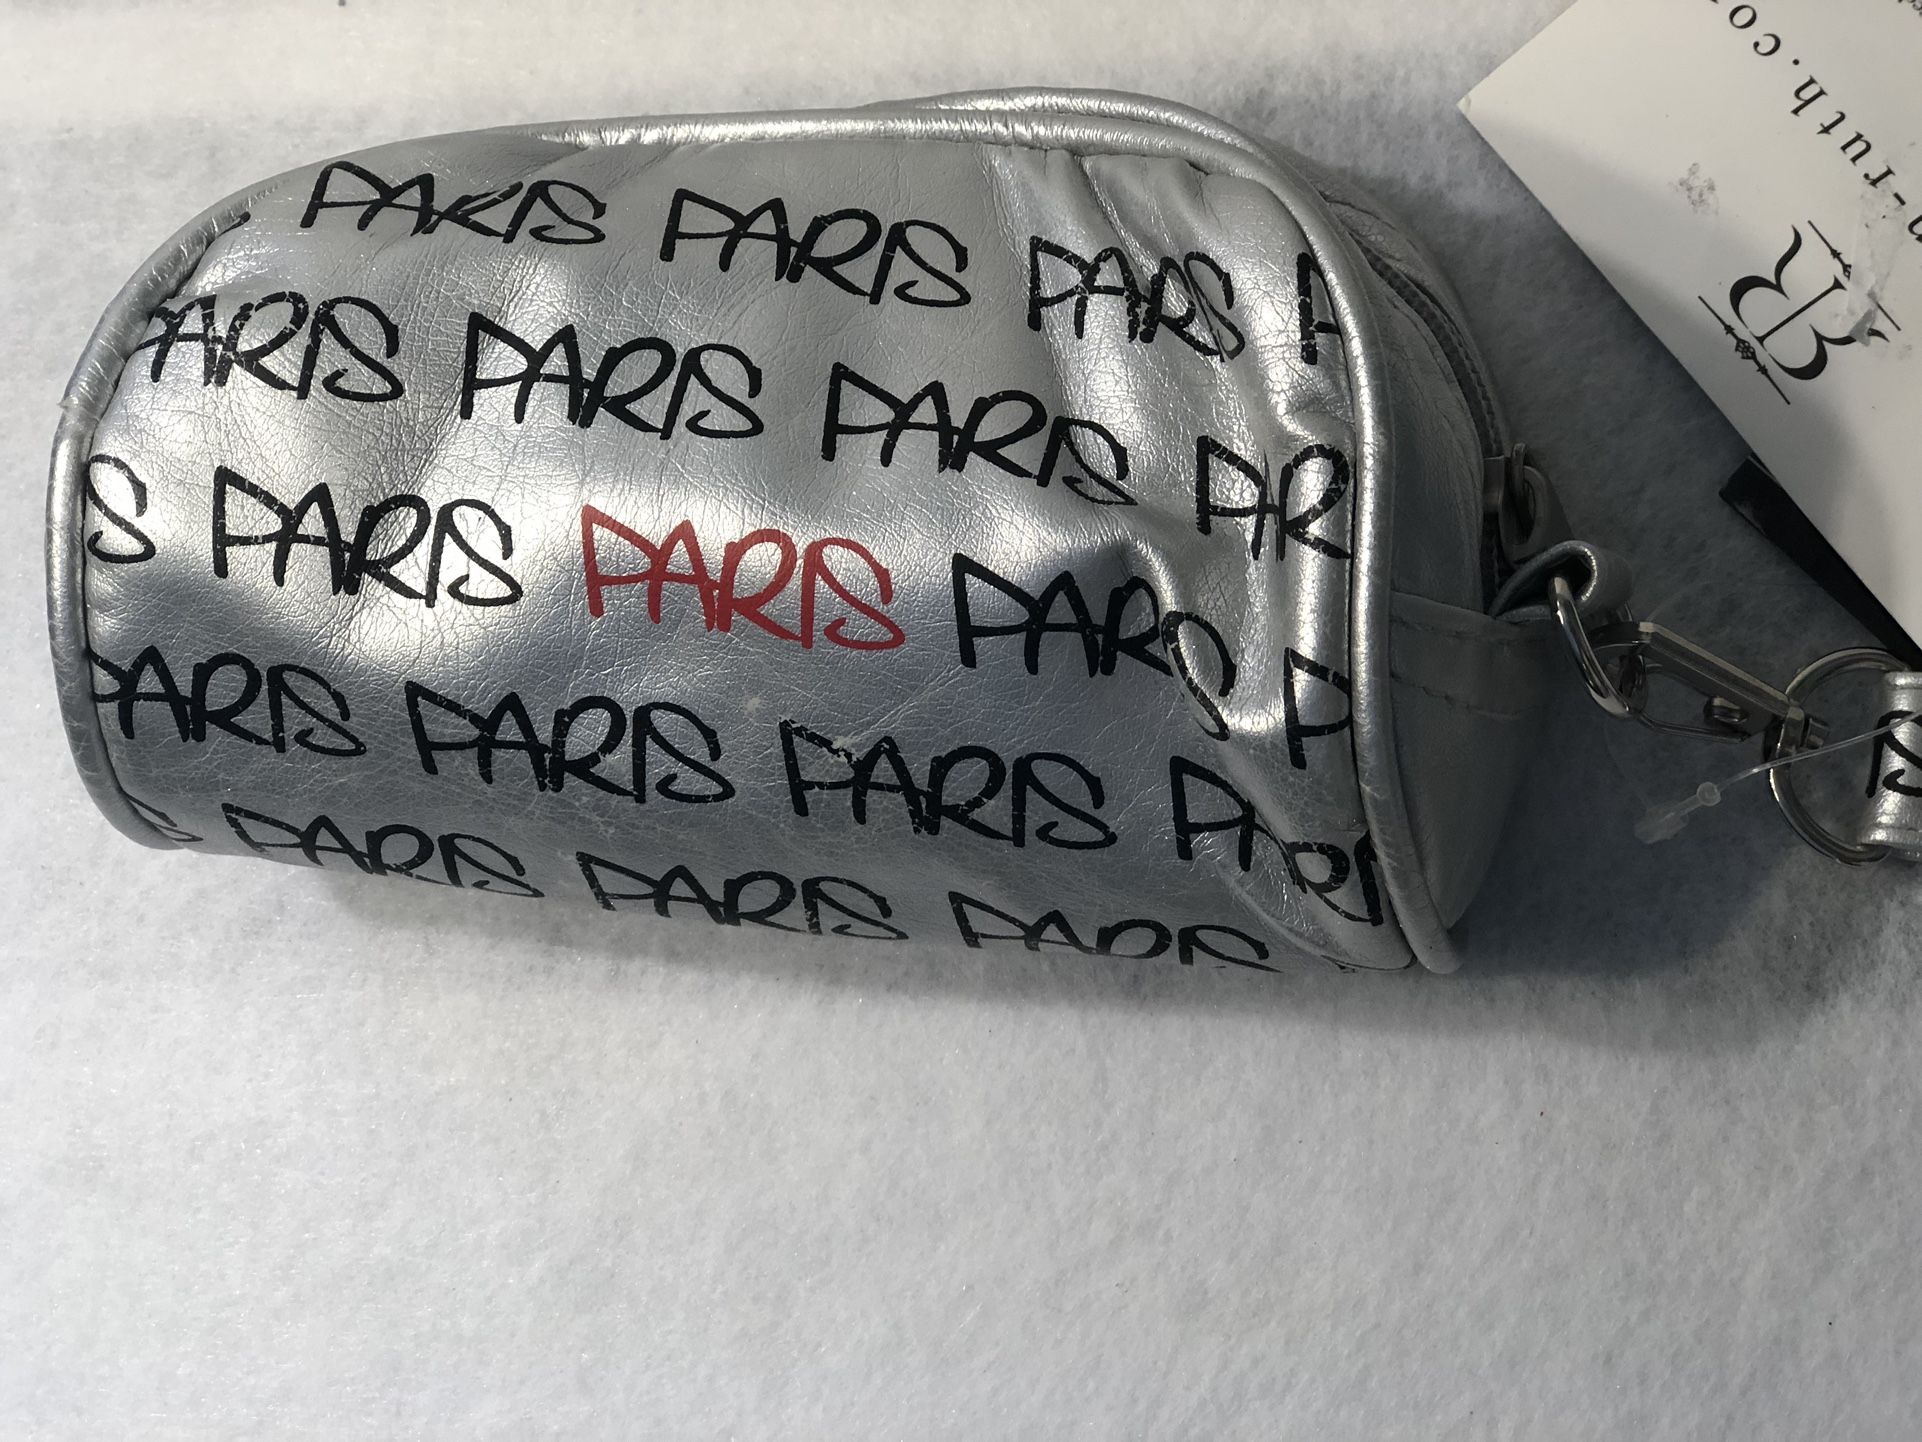 PARIS PARIS PARIS P
PARIS PARIS PARIS PAR
S PARIS PARIS PARIS P
PARIS PARIS PARIS PARI
S PARIS PARIS PARIS
-ruth.co
BR
S